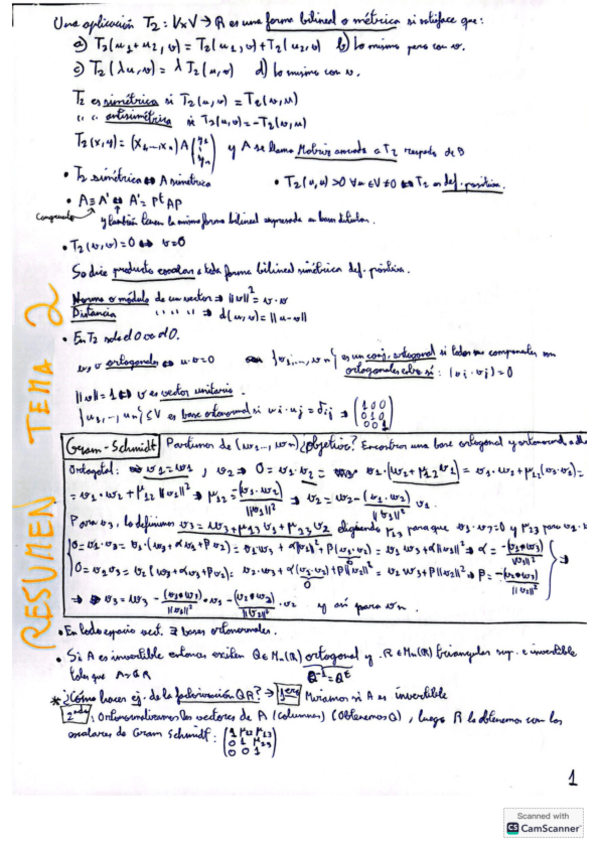 Una aplicación T₂: V×V → R es una forma bilineal o métrica si satisface que:
a) T₂(u₁+u₂, v) = T₂(u₁, v) + T₂(u₂, v) b) Lo mismo pero con v.
c) T₂(λu, v) = λ T₂(u, v) d) Lo mismo con v.
T₂ es simétrica si T₂(u, v) = T₂(v, u)
" " antisimétrica si T₂(u, v) = -T₂(v, u)
T₂(x, y) = (x₁ ... xₙ) A (y₁ ⋮ yₙ) y A se llama Matriz asociada a T₂ respecto de B
• T₂ simétrica ⇔ A simétrica • T₂(u, u) > 0 ∀u ∈ V ≠ 0 ⇔ T₂ es def. positiva.
• A ≡ A' ⇔ A' = Pᵗ A P
Congruente y también tienen la misma forma bilineal expresada en bases distintas.
• T₂(v, v) = 0 ⇔ v = 0
Se dice producto escalar a toda forma bilineal simétrica def. positiva.
Norma o módulo de un vector ⇒ ||v||² = v · v
Distancia " " " " ⇒ d(u, v) = ||u - v||
• En T₂ solo el 0 es el 0.
u, v ortogonales ⇔ u·v = 0 {v₁, ..., vₙ} es un conj. ortogonal si todos sus componentes son
ortogonales entre sí: (vᵢ · vⱼ) = 0
||v|| = 1 ⇔ v es vector unitario.
{u₁, ..., uₙ} ⊆ V es base ortonormal si uᵢ · uⱼ = δᵢⱼ ⇒ (1 0 0 / 0 1 0 / 0 0 1)
Gram-Schmidt Partimos de (w₁, ..., wₙ) ¿Objetivo? Encontrar una base ortogonal y ortonormal
Ortogonal: v₁ = w₁, v₂ ⇒ 0 = v₁ · v₂ = v₁ · (w₂ + μ₁₂ v₁) = v₁ · w₂ + μ₁₂ (v₁ · v₁) =
= v₁ · w₂ + μ₁₂ ||v₁||² ⇒ μ₁₂ = -(v₁ · w₂)/||v₁||² ⇒ v₂ = w₂ - (v₁ · w₂)/||v₁||² v₁
Para v₃, lo definimos v₃ = w₃ + μ₁₃ v₁ + μ₂₃ v₂ eligiendo μ₂₃ para que v₃ · v₂ = 0 y μ₁₃ para v₁ ·
0 = v₁ · v₃ = v₁ · (w₃ + αv₁ + βv₂) = v₁ w₃ + α||v₁||² + β(v₁ · v₂) = v₁ w₃ + α||v₁||² ⇒ α = -(v₁ · w₃)/||v₁||²
0 = v₂ v₃ = v₂ (w₃ + αv₁ + βv₂) = v₂ · w₃ + α(v₂ · v₁) + β||v₂||² = v₂ w₃ + β||v₂||² ⇒ β = -(v₂ · w₃)/||v₂||² ⇒
⇒ v₃ = w₃ - (v₁ · w₃)/||v₁||² · v₁ - (v₂ · w₃)/||v₂||² · v₂ y así para vₙ.
• En todo espacio vect. ∃ bases ortonormales.
• Si A es invertible entonces existen Q ∈ Mₙ(R) ortogonal y R ∈ Mₙ(R) triangular sup. e invertible
tales que A = QR Q⁻¹ = Qᵗ
* ¿Cómo hacer ej. de la factorización QR? → 1ero Miramos si A es invertible
2ndo: Ortonormalizamos los vectores de A (columnas) (Obtenemos Q), luego R lo obtenemos con los
escalares de Gram Schmidt: (1 μ₁₂ μ₁₃ / 0 1 μ₂₃ / 0 0 1)
RESUMEN TEMA 2
1
Scanned with
CS CamScanner